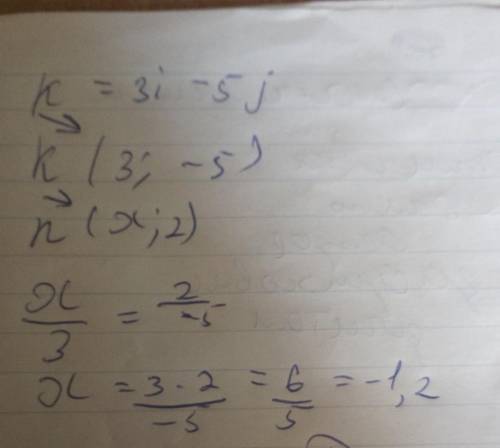 k = 3i - 5j
k (3; -5)
n (x; 2)
x/3 = 2/-5
x = 3·2/-5 = 6/5 = -1,2